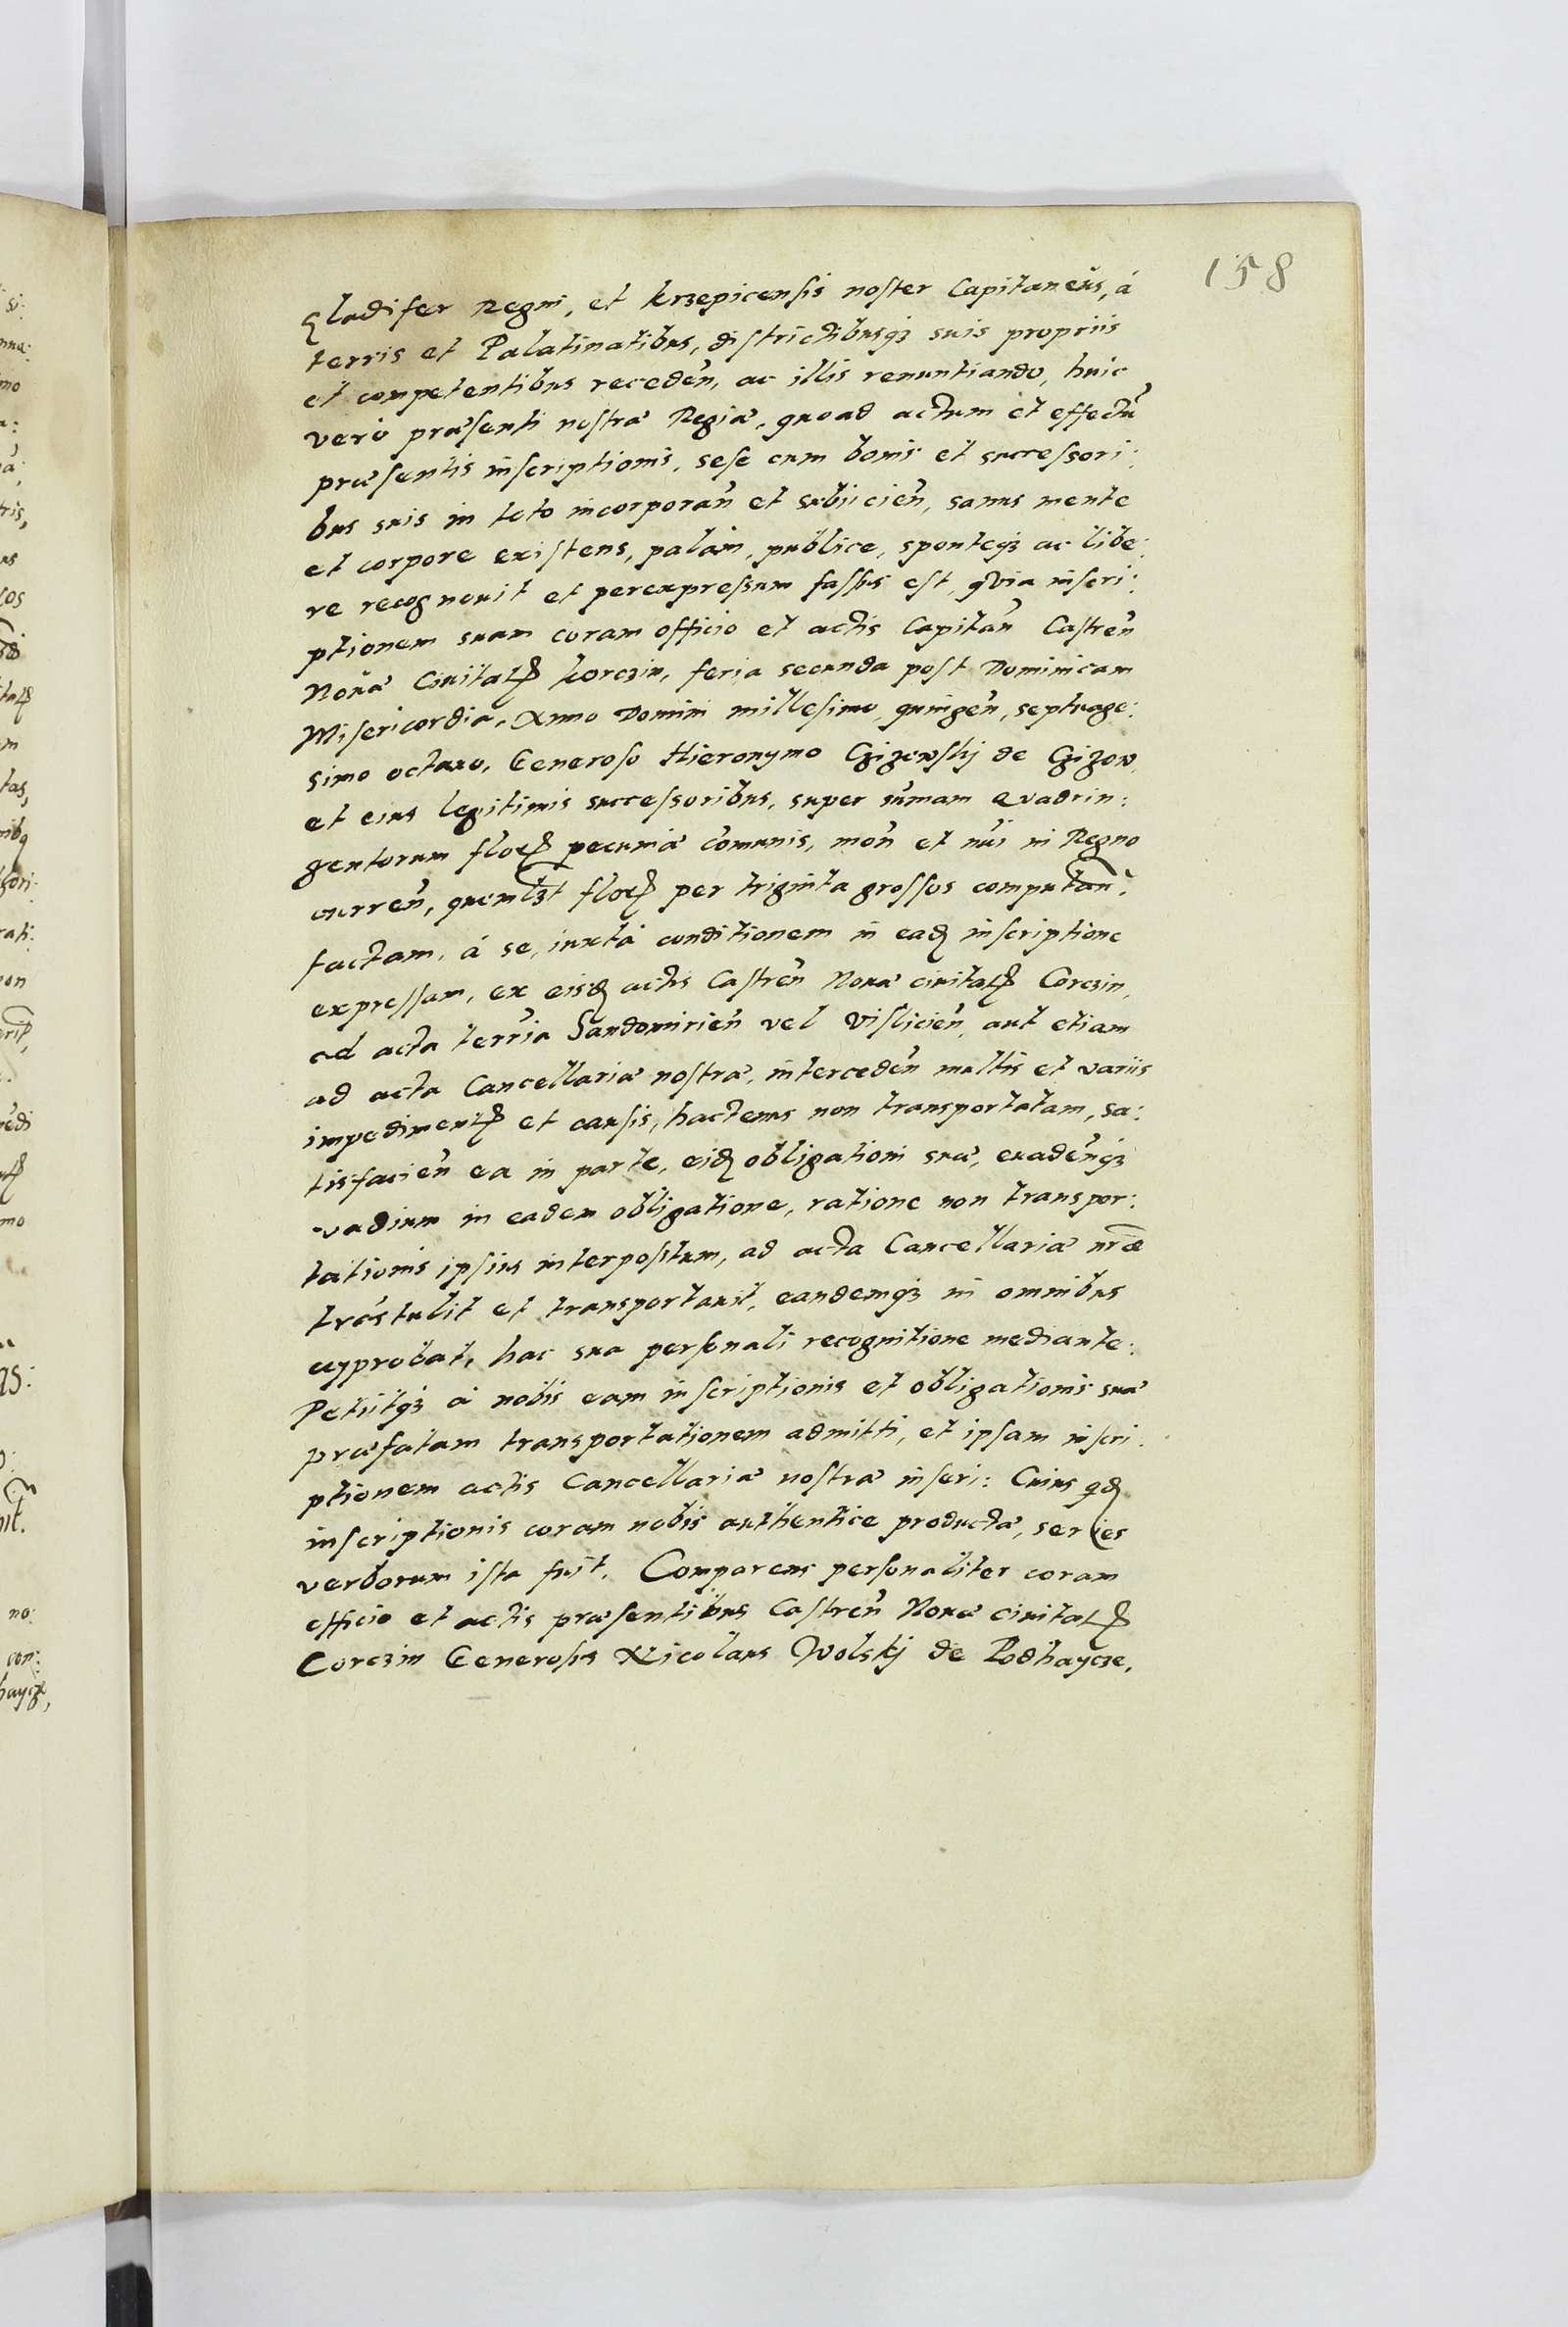 158
gladifer Regni, et krzepicensis noster Capitaneus, á
terris et Palatinatibus, districtibusq3 suis propriis
et competentibus receden̄, ac illis renuntiando, huic
vero præsenti nostræ Regiæ, quoad actum et effectū
præsentis inscriptionis, sese cum bonis et successori:
bus suis in toto incorporan̄ et subiicien̄, sanus mente
et corpore existens, palàm, publice, sponteq3 ac libe:
re recognouit et perexpressum fassus est, quia inscri:
ptionem suam coram officio et actis Capitan̄ Castren̄
Nouæ Ciuitatꝭ korczin, feria secunda post Dominicam
Misericordiæ, Anno Domini millesimo, quingen̄, septuage:
simo octauo, Generoso Hieronymo Czizowskj de Czizow,
et eius legitimis successoribus, super sūmam Quadrin:
gentorum florꝭ pecuniæ comunis, mon̄ et nūi in Regno
curren̄, quemlꝫt florꝭ per triginta grossos computan̄:
factam, á se, iuxtá conditionem in eadꝭ inscriptione
expressam, ex eisdꝭ actis Castren̄ Nouæ ciuitatꝭ Corczin,
ad acta terr̄ia Sandomirien̄ vel Vislicien̄, aut etiam
ad acta Cancellariæ nostræ, interceden̄ multis et variis
impedimentꝭ et causis, hactenus non transportatam, sa:
tisfacien̄ ea in parte, eidꝭ obligationi suæ, euaden̄q3
vadium in eadem obligatione, ratione non transpor:
tationis ipsius interpositum, ad acta Cancellariæ nr̄æ
trāstulit et transportauit, eandemq3 in omnibus
approbat, hac sua personali recognitione mediante:
Petiitq3 á nobis eam inscriptionis et obligationis suæ
præfatam transportationem admitti, et ipsam inscri:
ptionem actis Cancellariæ nostræ inseri: Cuius qdꝭ
inscriptionis coram nobis authentice productæ, series
verborum ista fuit. Comparens personaliter coram
officio et actis præsentibus Castren̄ Nouæ ciuitatꝭ
Corczin Generosus Nicolaus Wolskj de Podhaycze,